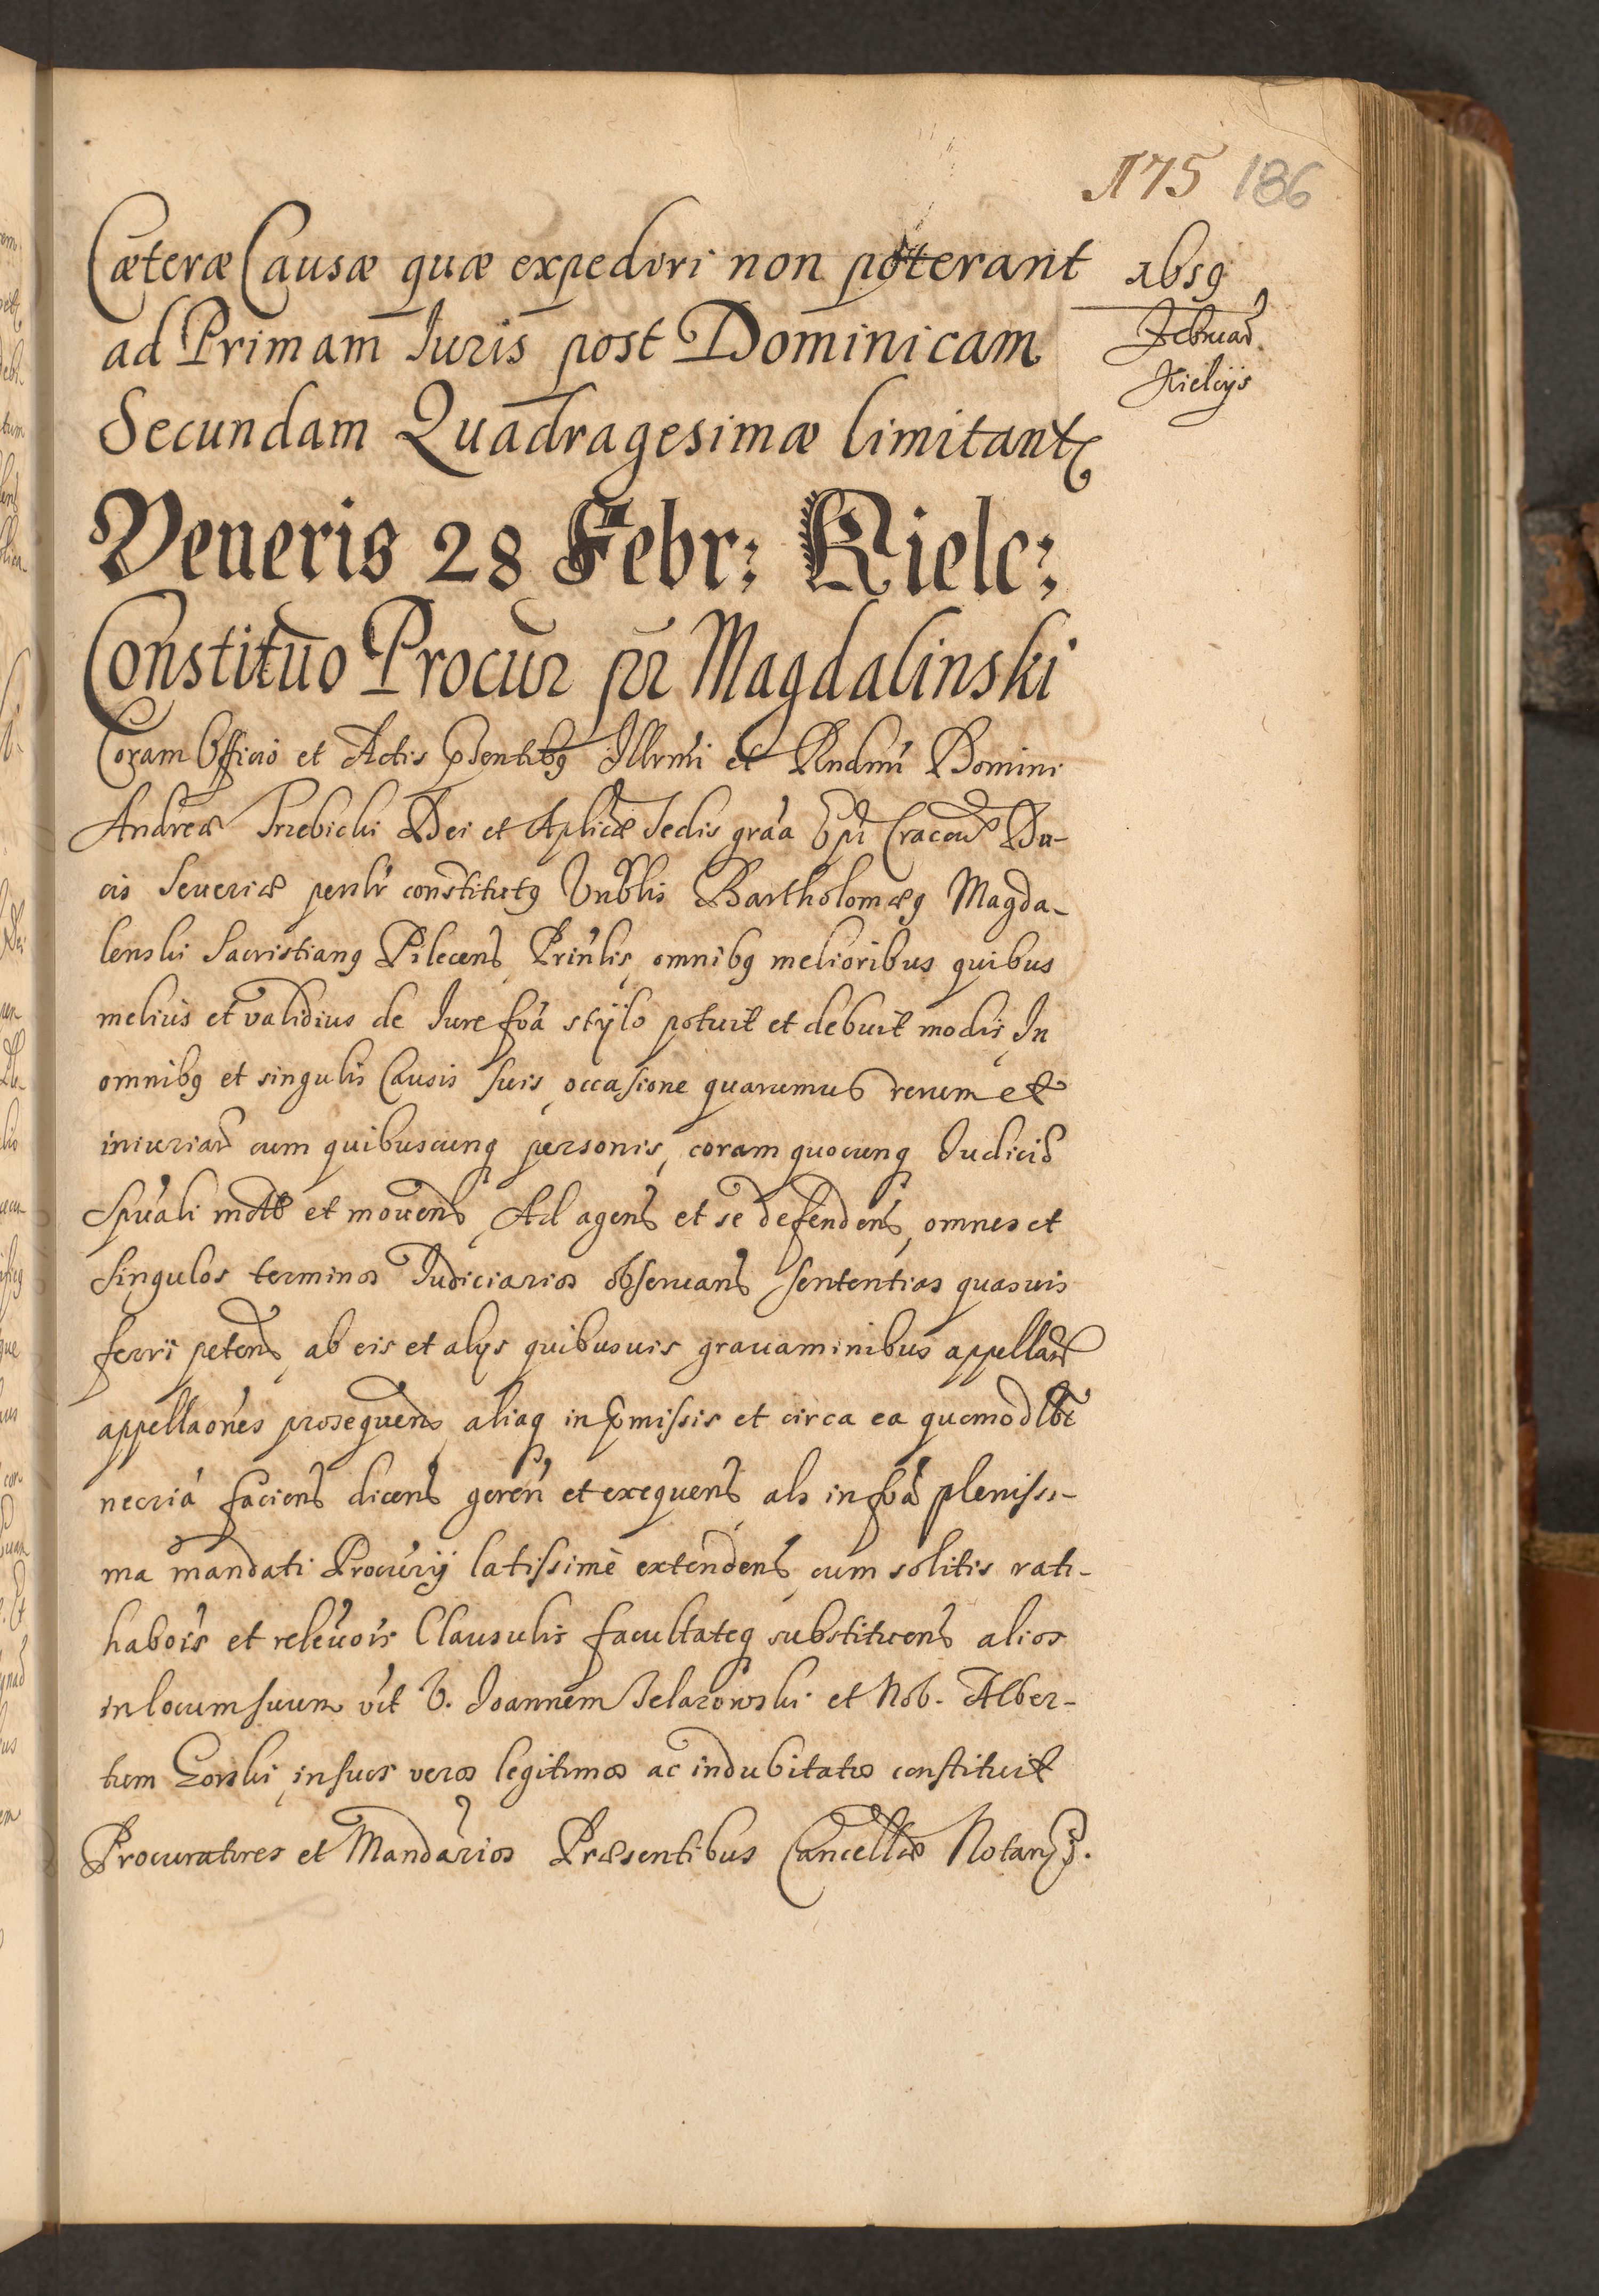 175 186
Cæteræ Causæ quæ expediri non poterant
ad Primam Iuris post Dominicam
Secundam Quadragesimæ limitant
1659
Februar
Kielcÿs
Veneris 28 Febr: Kielc:
Constituo Procur pr Magdalinski
Coram Officio et Actis pſentibꝯ Illrmi et Rndmi Domini
Andreæ Trzebicki Dei et Aplicæ Sedis gra'a Epi Cracou Du-
cis Seueriæ perslr constitutꝯ Vnblis Bartholomæꝯ Magda-
lenski Sacristianꝯ Pilecens Prin'lis, omnibꝯ melioribus quibus
melius et validius de Iure foa stÿlo potuit et debuit modis, In
omnibꝯ et singulis Causis suis, occasione quarumuis rerum et
iniuriar cum quibuscunq personis, coram quocunq Iudicio
Spuali mot et mouens, Ad agens et se defendens, omnes et
singulos terminos Iudiciarios obseruans sententias quasuis
ferri petens, ab eis et alÿs quibusuis grauaminibus appellan
appellaones prosequens, aliaq in præmissis et circa ea quomodlbt
necria faciens dicens geren et exequens, als in foa plenissi-
ma mandati Procurÿ latissimè extendens, cum solitis rati-
habois et releuois Clausulis facultateq substituens alios
in locum suum vit V. Joannem Zelazowski et Nob. Alber-
tum Gorski, in suos veros legitimos ac indubitatos constituit
Procuratores et Mandarios Præsentibus Cancellæ Notarÿs.